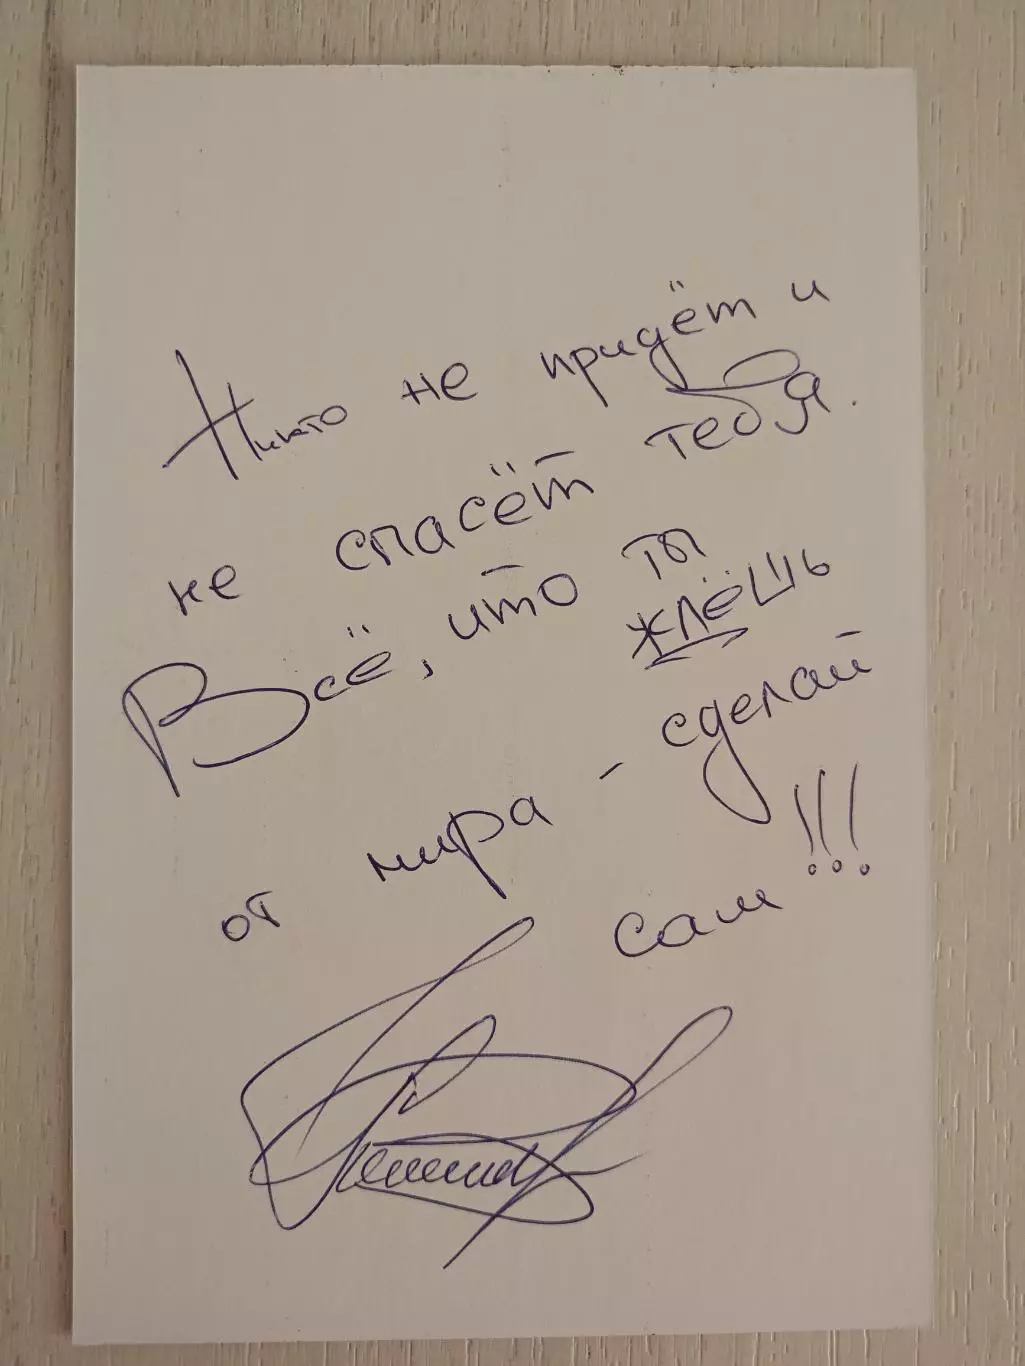 Никто не придёт и
не спасёт тебя.
Всё, что ты
ждёшь
от мира - сделай
сам!!!